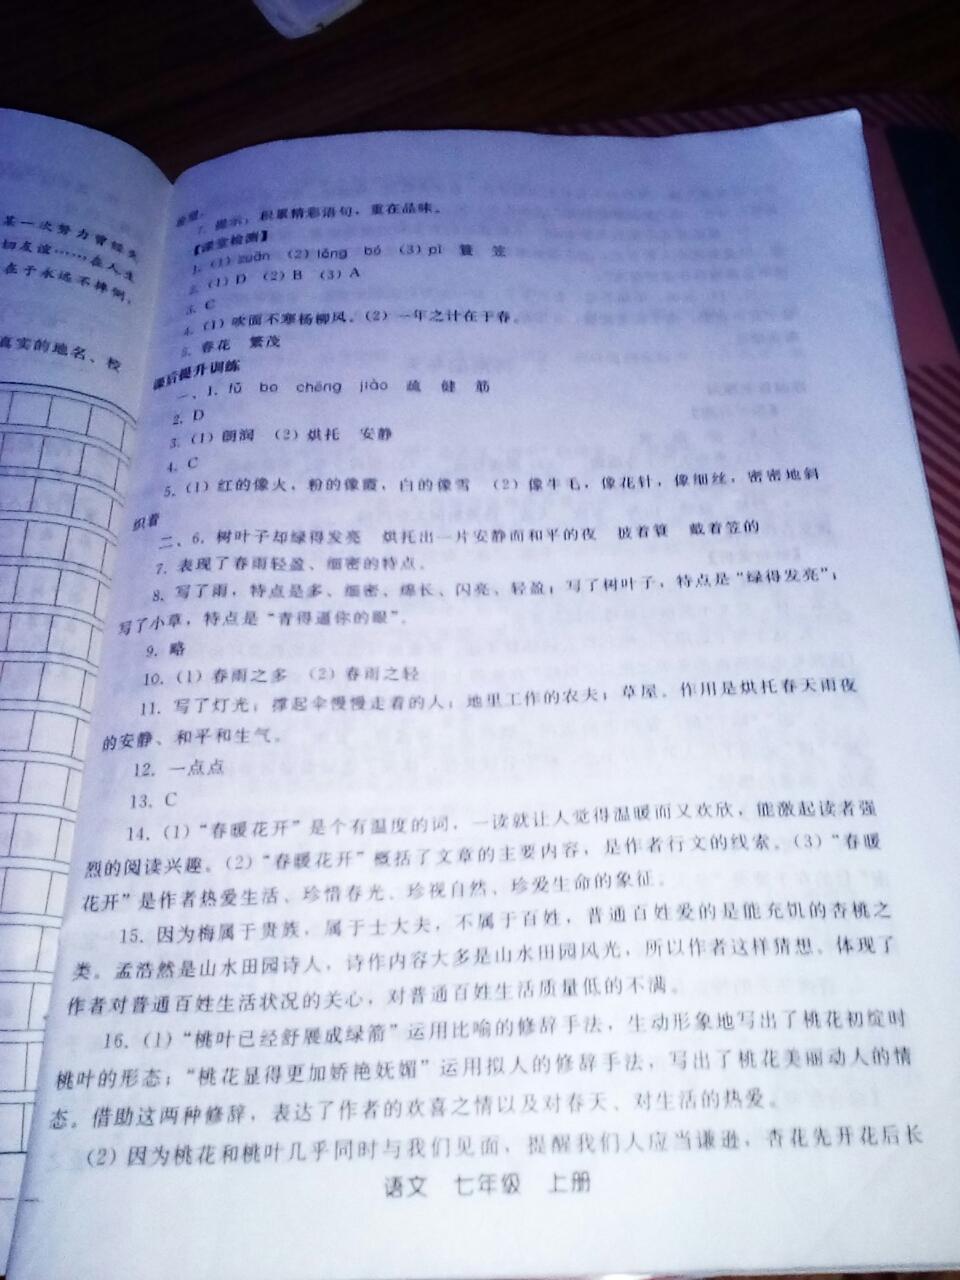 某一次努力曾经失
切友谊……在人生
在于永远不掉倒,
真实的地名、校
7. 提示:积累精彩语句,重在品味。
【课堂检测】
1. (1)zuǎn (2)lǒng bó (3)pī 蓑 笠
2. (1)D (2)B (3)A
3. C
4. (1)吹面不寒杨柳风。(2)一年之计在于春。
5. 春花 繁茂
课后提升训练
一、1. fǔ bo chēng jiào 疏 健 筋
2. D
3. (1)朗润 (2)烘托 安静
4. C
5. (1)红的像火,粉的像霞,白的像雪 (2)像牛毛,像花针,像细丝,密密地斜
织着
二、6. 树叶子却绿得发亮 烘托出一片安静而和平的夜 披着蓑 戴着笠的
7. 表现了春雨轻盈、细密的特点。
8. 写了雨,特点是多、细密、绵长、闪亮、轻盈;写了树叶子,特点是“绿得发亮”;
写了小草,特点是“青得逼你的眼”。
9. 略
10. (1)春雨之多 (2)春雨之轻
11. 写了灯光;撑起伞慢慢走着的人;地里工作的农夫;草屋。作用是烘托春天雨夜
的安静、和平和生气。
12. 一点点
13. C
14. (1)“春暖花开”是个有温度的词,一读就让人觉得温暖而又欢欣,能激起读者强
烈的阅读兴趣。(2)“春暖花开”概括了文章的主要内容,是作者行文的线索。(3)“春暖
花开”是作者热爱生活、珍惜春光、珍视自然、珍爱生命的象征。
15. 因为梅属于贵族,属于士大夫,不属于百姓,普通百姓爱的是能充饥的杏桃之
类。孟浩然是山水田园诗人,诗作内容大多是山水田园风光,所以作者这样猜想。体现了
作者对普通百姓生活状况的关心,对普通百姓生活质量低的不满。
16. (1)“桃叶已经舒展成绿箭”运用比喻的修辞手法,生动形象地写出了桃花初绽时
桃叶的形态;“桃花显得更加娇艳妩媚”运用拟人的修辞手法,写出了桃花美丽动人的情
态。借助这两种修辞,表达了作者的欢喜之情以及对春天、对生活的热爱。
(2)因为桃花和桃叶几乎同时与我们见面,提醒我们人应当谦逊,杏花先开花后长
语文 七年级 上册